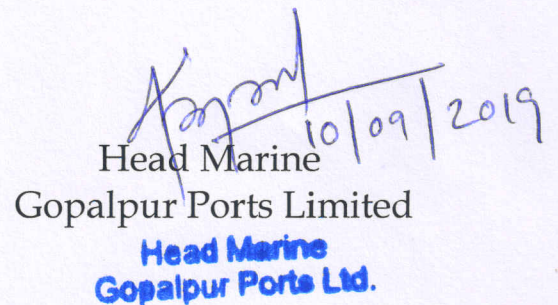 10/09/2019
Head Marine
Gopalpur Ports Limited
Head Marine
Gopalpur Ports Ltd.